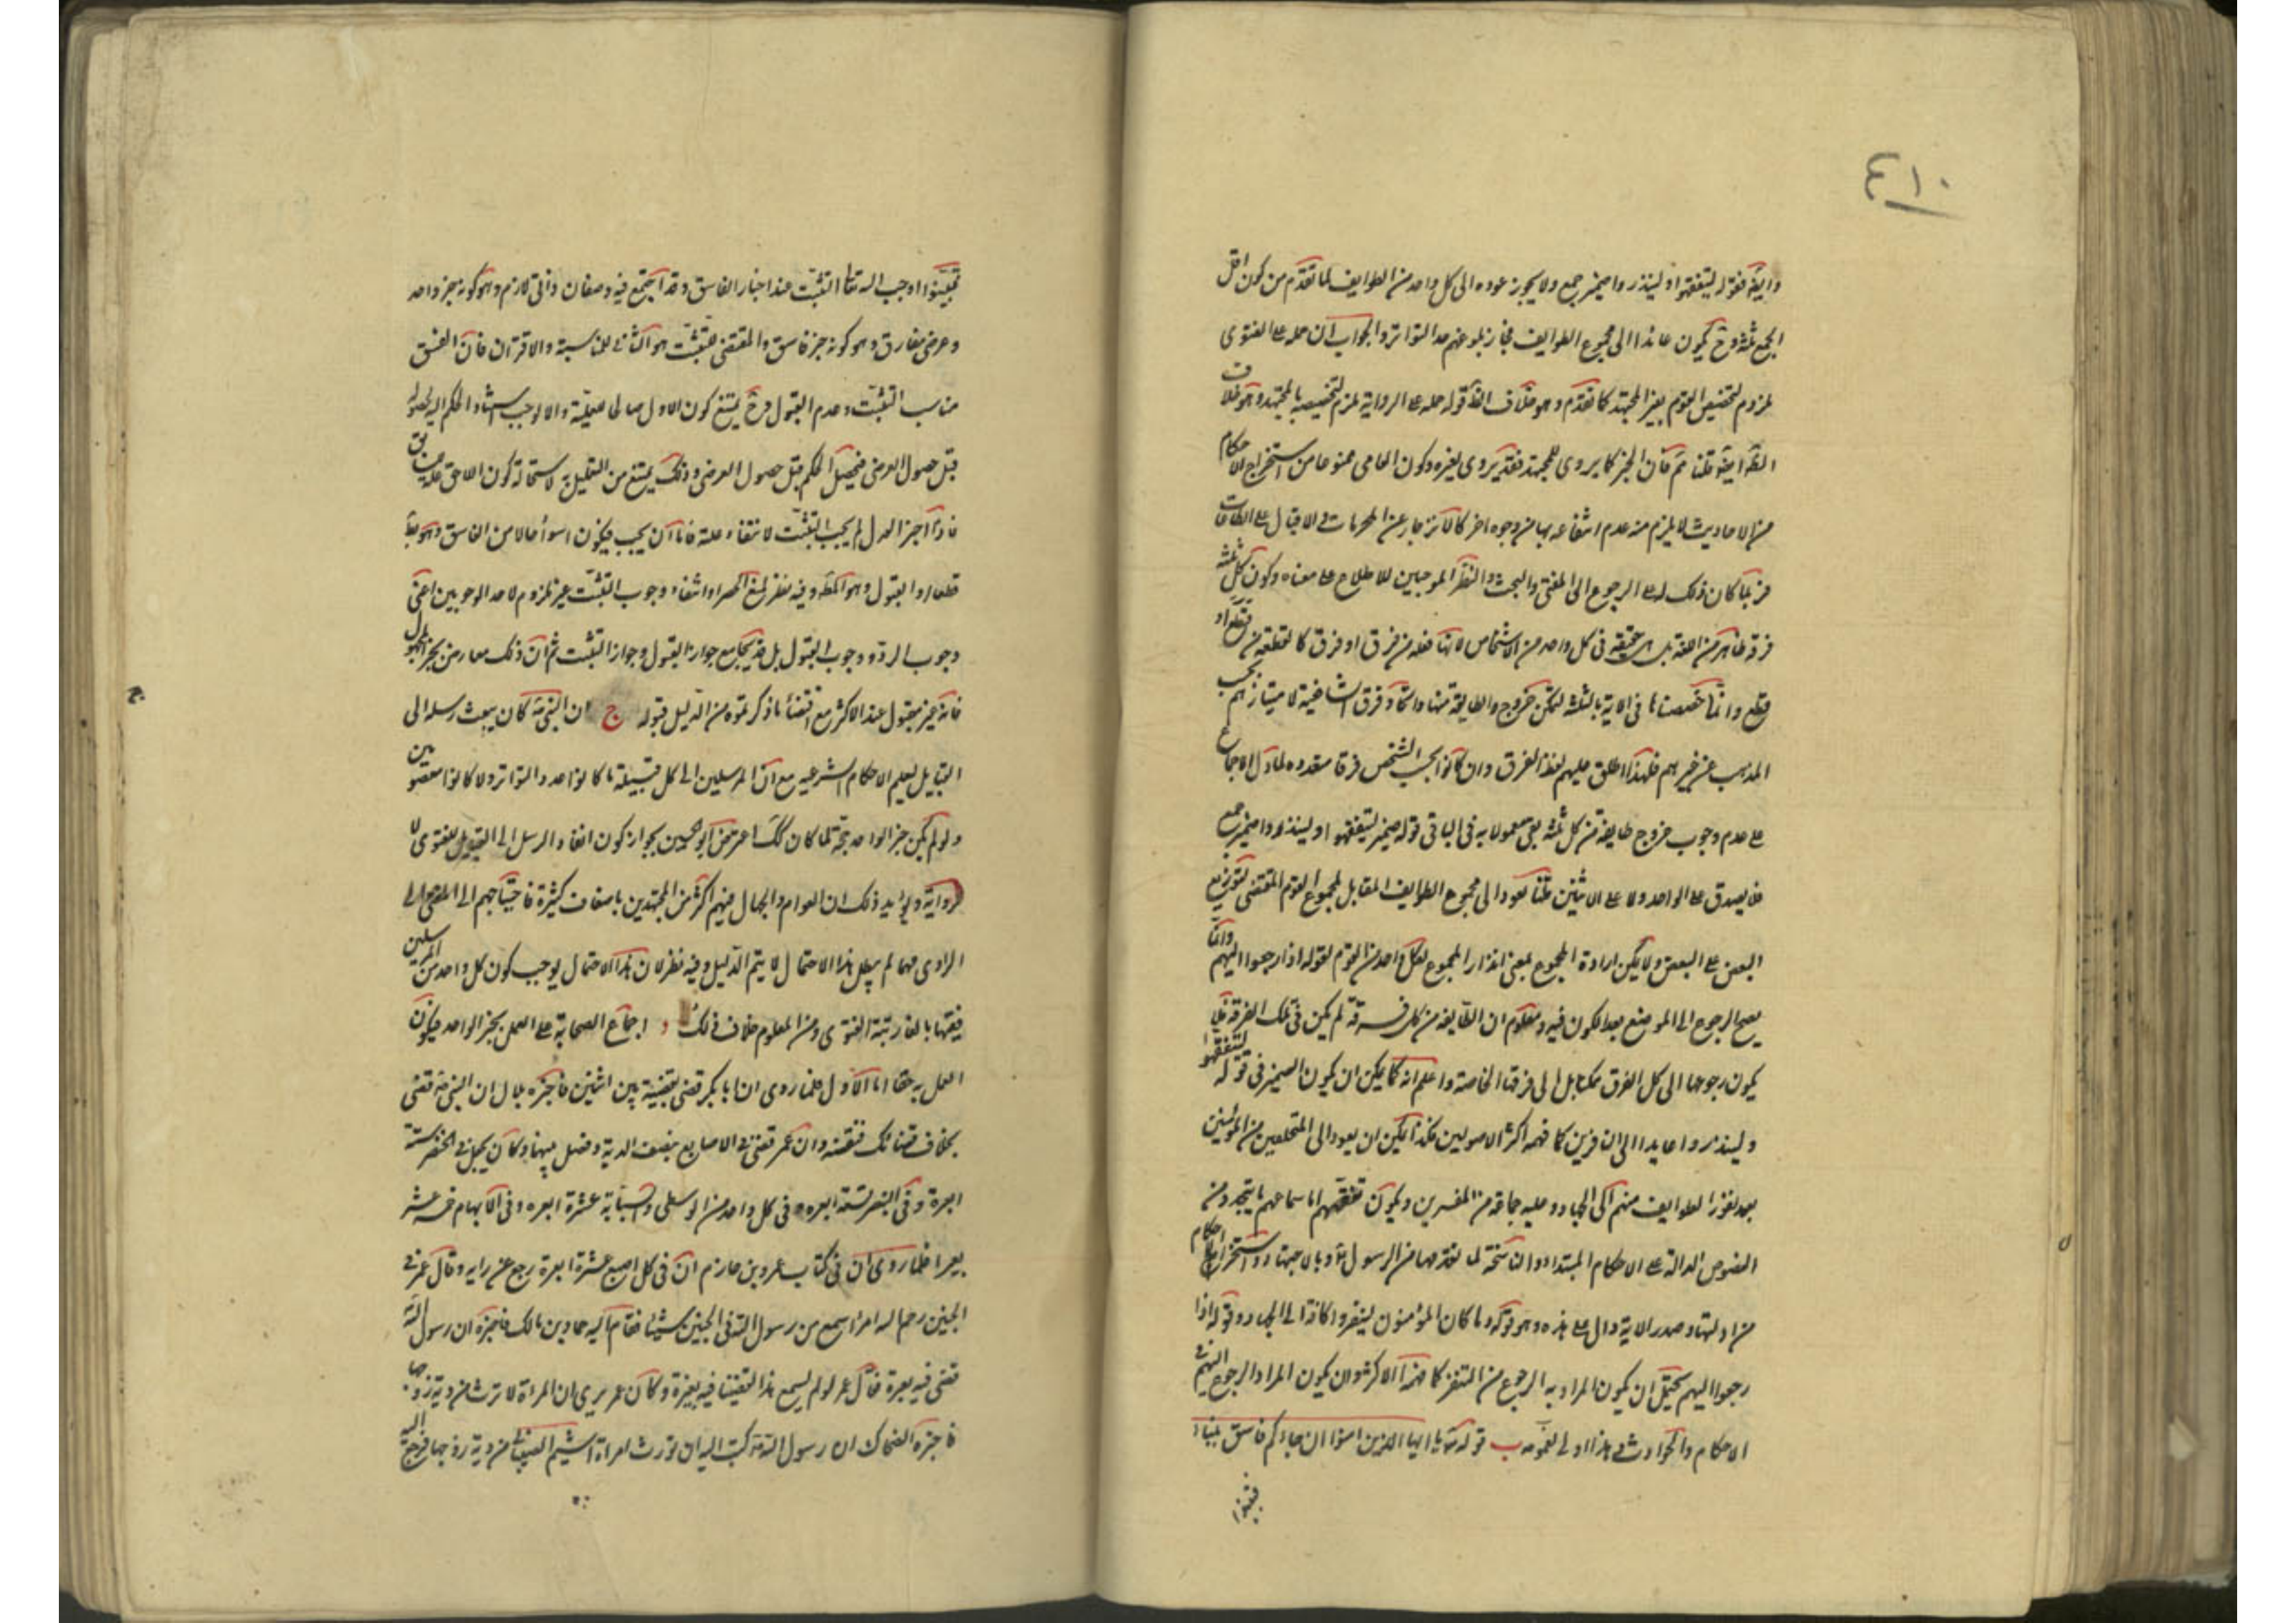 ٤١٠
وايضا فقوله ليتفقهوا ولينذروا ضمير جمع ولا يجوز عوده الى كل واحد من الطوايف لما تقدم من كون اقل
الجمع ثلثة وح يكون عائدا الى مجموع الطوايف فجاز بلوغهم حد التواتر والجواب ان حمله على الفتوى
يلزم لتخصيص القوم بغير المجتهد كما تقدم وهو خلاف الظ قوله حمله على الرواية يلزم تخصيصه بالمجتهد وهو خلاف
الظ ايضا قلنا مم فان الخبر كما يروى للمجتهد فقد يروى لغيره وكون العامى ممنوعا من استخراج الاحكام
من الاحاديث لا يلزم منه عدم انتفاعه بها من وجوه اخر كالانزجار عن المحرمات والاقبال على الطاعات
فربما كان ذلك له على الرجوع الى المفتى والبحث والنظر الموجبين للاطلاع على معناه وكون كل ثلثة
فرقة ظاهر من اللغة بل هى حقيقة فى كل واحد من الاشخاص لانها فعلة من فرق او فرق كالقطعة من قطع او
قطع وانما خصصناها فى الاية بالثلثة ليمكن خروج الطايفة منها واتحاد فرق الشافعية لامتيازهم بحسب
المذهب عن غيرهم فلهذا اطلق عليهم لفظ الفرق وان كانوا بحسب الشخص فرقا متعدده ولما دل الاجماع
على عدم وجوب خروج طايفة من كل ثلثة بقى معمولا به فى الباقى قوله ضمير ليتفقهوا ولينذروا ضمير جمع
فلا يصدق على الواحد ولا على الاثنين قلنا يعود الى مجموع الطوايف المقابل لمجموع القوم المقتضى لتوزيع
البعض على البعض ولا يمكن ارادة المجموع بمعنى انذار المجموع لكل واحد من القوم لقوله اذا رجعوا اليهم وانما
يصح الرجوع الى الموضع بعد الكون فيه ومعلوم ان الطايفة من كل فرقة لم يكن فى تلك الفرقة فلا
يكون رجوعها الى كل الفرق ممكنا بل الى فرقتها الخاصة واعلم انه كما يمكن ان يكون الضمير فى قوله ليتفقهوا
ولينذروا عايدا الى النافرين كما فهمه اكثر الاصوليين فكذا يمكن ان يعود الى المتخلفين من المؤمنين
بعد نفور الطوايف منهم الى الجهاد وعليه جماعة من المفسرين ويكون تفقههم اما سماعهم ما يتجدد من
النصوص الدالة على الاحكام المبتداه والناسخة لما تقدمها من الرسول او بالاجتهاد واستخراج احكام
من ادلتها وصدر الاية دال على هذه وهو قوله وما كان المؤمنون لينفروا كافة الى الجهاد وقوله اذا
رجعوا اليهم يحتمل ان يكون المراد به الرجوع من التنفر كما فهمه الاكثر وان يكون المراد الرجوع اليهم فى
الاحكام والحوادث وهذا اولى لعمومه ب قوله تع يا ايها الذين امنوا ان جاءكم فاسق بنباء
فتبينوا
فتبينوا اوجب الله تعالى التثبت عند اخبار الفاسق وقد اجتمع فيه وصفان ذاتى لازم وهو كونه خبر واحد
وعرضى مفارق وهو كونه خبر فاسق والمقتضى للتثبت هو الثانى للمناسبة والاقتران فان الفسق
مناسب التثبت وعدم القبول وح يمتنع كون الاول صالحا للعلية والا لوجب استناد الحكم اليه لحصوله
قبل حصول العرضى فيحصل الحكم قبل حصول العرضى وذلك يمتنع من التعليل به لاستحالة كون اللاحق علة للسابق
فاذا اخبر العدل لم يجب التثبت لانتفاء علته فاما ان يجب الرد فيكون اسوأ حالا من الفاسق وهو بط
قطعا او القبول وهو المط وفيه نظر لمنع الحصر اذ انتفاء وجوب التثبت غير ملزوم لاحد الوجوبين اعنى
وجوب الرد ووجوب القبول بل قد يجامع جواز القبول وجواز التثبت ثم ان ذلك معارض بخبر المجهول
فانه غير مقبول عند الاكثر مع اقتضاء ما ذكرتموه من الدليل قبوله ج ان النبى ص كان يبعث رسله الى
القبايل لتعليم الاحكام الشرعيه مع ان المرسلين الى كل قبيلة ما كانوا حد التواتر ولا كانوا معصومين
ولو لم يكن خبر الواحد حجة لما كان كك اعترض ابو الحسين بجواز كون انفاذ الرسل الى القبايل للفتوى لا
للرواية ويؤيد ذلك ان العوام والجهال منهم اكثر من المجتهدين باضعاف كثيرة فاحتياجهم الى المفتى الى
الراوى فما لم يبطل هذا الاحتمال لا يتم الدليل وفيه نظر لان هذا الاحتمال يوجب كون كل واحد من المرسلين
فقيها بالغا رتبة الفتوى ومن المعلوم خلاف ذلك د اجماع الصحابة على العمل بخبر الواحد فيكون
العمل به حقا اما الاول فلما روى ان ابا بكر قضى بقضية بين اثنين فاخبره بلال ان النبى ص قضى
بخلاف قضائك فنقضه وان عمر قضى فى الاصابع بنصف الدية وفضل بينها وكان يجعل فى الخنصر ستة
ابعرة وفى البنصر تسعة ابعره فى كل واحد من الوسطى والسبابة عشرة ابعره وفى الابهام خمسة عشر
بعيرا فلما روى ان فى كتاب عمرو بن حازم ان فى كل اصبع عشرة ابعرة رجع عن رايه وقال عمر فى
الجنين رحم الله امرا سمع من رسول الله فى الجنين شيئا فقام اليه حماد بن مالك فاخبره ان رسول الله
قضى فيه بغرة فقال عمر لو لم نسمع هذا لقضينا فيه بغيره وكان عمر يرى ان المراة لا ترث من دية زوجها
فاخبره الضحاك ان رسول الله ص كتب اليه ان تورث امراة اشيم الضبابى من دية زوجها فرجع اليه